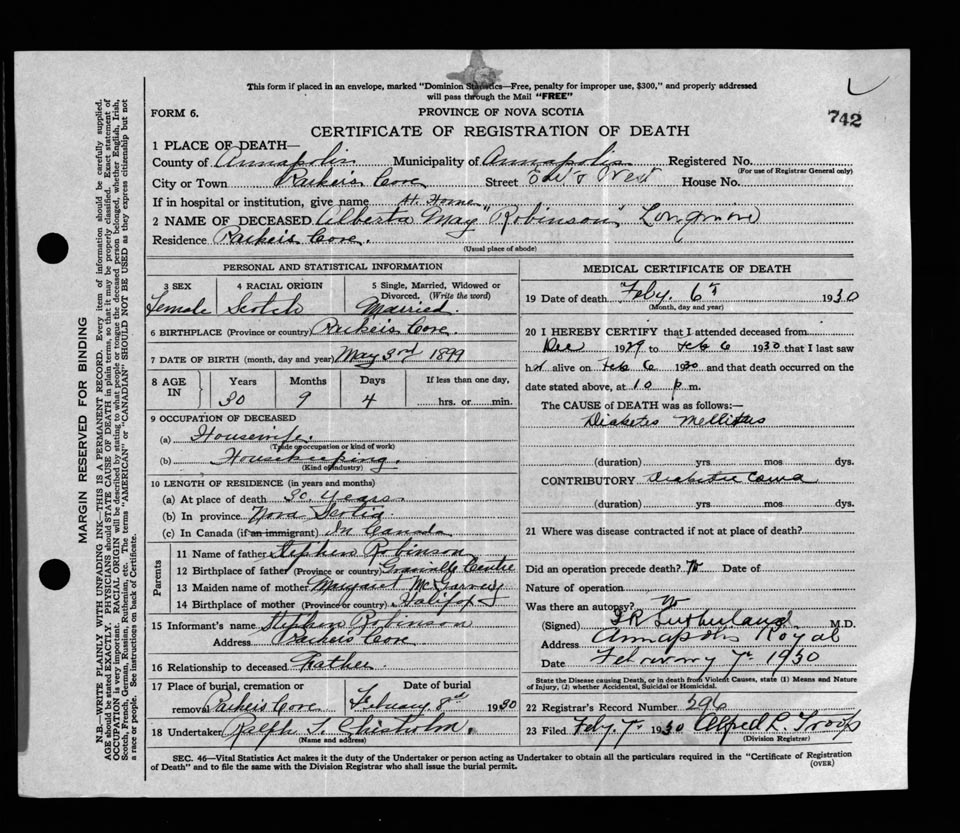 This form if placed in an envelope, marked "Dominion Statistics—Free, penalty for improper use, $300," and properly addressed
will pass through the Mail "FREE"
742
FORM 6.
PROVINCE OF NOVA SCOTIA
CERTIFICATE OF REGISTRATION OF DEATH
1 PLACE OF DEATH—
County of Annapolis Municipality of Annapolis Registered No.
(For use of Registrar General only)
City or Town Parkers Cove Street East & West House No.
If in hospital or institution, give name At Home
2 NAME OF DECEASED Alberta May "Robinson" Longmire
Residence Parkers Cove.
(Usual place of abode)
PERSONAL AND STATISTICAL INFORMATION
3 SEX 4 RACIAL ORIGIN 5 Single, Married, Widowed or
Divorced. (Write the word)
Female Scotch Married.
6 BIRTHPLACE (Province or country) Parkers Cove.
7 DATE OF BIRTH (month, day and year) May 3rd 1899
8 AGE IN Years Months Days If less than one day,
30 9 4 hrs. or min.
9 OCCUPATION OF DECEASED
(a) Housewife.
(Trade or occupation or kind of work)
(b) Housekeeping.
(Kind of industry)
10 LENGTH OF RESIDENCE (in years and months)
(a) At place of death 30 Years
(b) In province Nova Scotia
(c) In Canada (if an immigrant) In Canada
Parents
11 Name of father Stephen Robinson
12 Birthplace of father (Province or country) Granville Centre
13 Maiden name of mother Margaret McGarvey
14 Birthplace of mother (Province or country) Halifax
15 Informant's name Stephen Robinson
Address Parkers Cove
16 Relationship to deceased Father
17 Place of burial, cremation or Date of burial
removal Parkers Cove February 8th 1930
18 Undertaker Ralph Chisholm.
(Name and address)
MEDICAL CERTIFICATE OF DEATH
19 Date of death Feby. 6th 1930
(Month, day and year)
20 I HEREBY CERTIFY that I attended deceased from
Dec 1929 to Feb 6 1930 that I last saw
her alive on Feb 6 1930 and that death occurred on the
date stated above, at 10 p m.
The CAUSE of DEATH was as follows:—
Diabetes Mellitus
(duration) yrs. mos. dys.
CONTRIBUTORY Diabetic Coma
(duration) yrs. mos. dys.
21 Where was disease contracted if not at place of death?
Did an operation precede death? No Date of
Nature of operation
Was there an autopsy? No
(Signed) Sutherland M.D.
Address Annapolis Royal
Date February 7th 1930
State the Disease causing Death, or in death from Violent Causes, state (1) Means and Nature
of Injury, (2) whether Accidental, Suicidal or Homicidal.
22 Registrar's Record Number 296
23 Filed Feby 7th 1930 Alfred L. Troop
(Division Registrar)
SEC. 46—Vital Statistics Act makes it the duty of the Undertaker or person acting as Undertaker to obtain all the particulars required in the "Certificate of Registration
of Death" and to file the same with the Division Registrar who shall issue the burial permit.
(OVER)
MARGIN RESERVED FOR BINDING
N.B.—WRITE PLAINLY WITH UNFADING INK—THIS IS A PERMANENT RECORD. Every item of information should be carefully supplied.
AGE should be stated EXACTLY. PHYSICIANS should STATE CAUSE OF DEATH in plain terms, so that it may be properly classified. Exact statement of
OCCUPATION is very important. RACIAL ORIGIN will be described by stating to what people or tongue the deceased person belonged, whether English, Irish,
Scotch, French, German, Russian, Ruthenian, etc. The terms "AMERICAN" or "CANADIAN" SHOULD NOT BE USED as they express citizenship but not
a race or people. See instructions on back of Certificate.